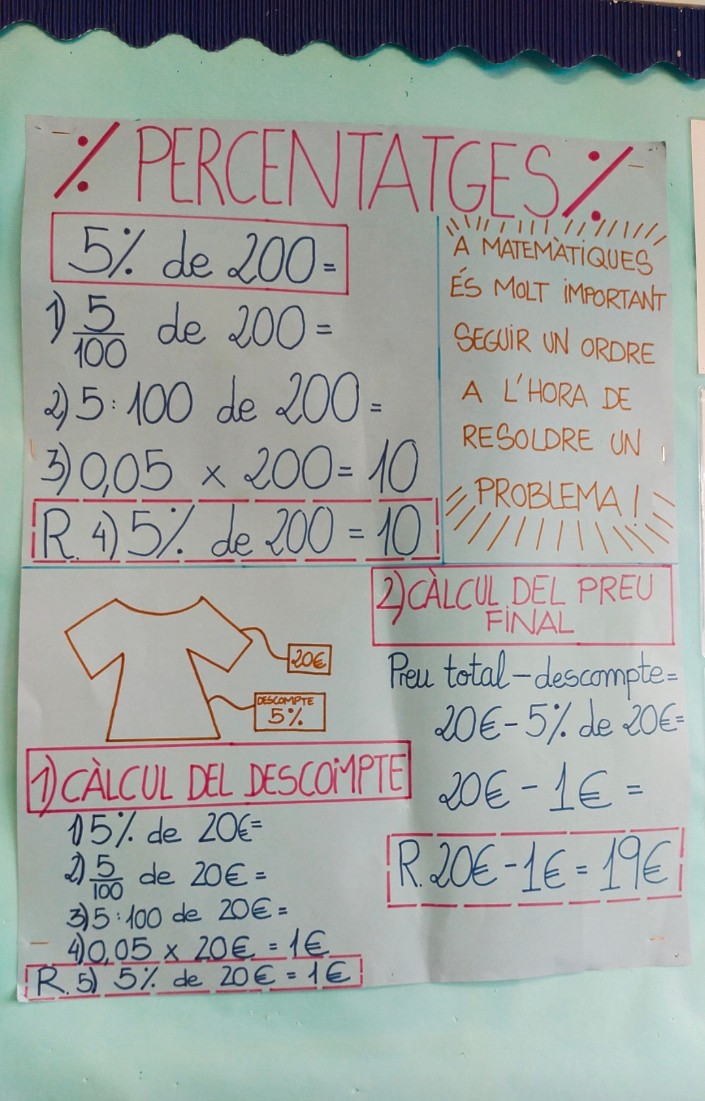 % PERCENTATGES %
5% de 200=
1) 5/100 de 200=
2) 5:100 de 200=
3) 0,05 x 200= 10
R. 4) 5% de 200=10
A MATEMÀTIQUES
ÉS MOLT IMPORTANT
SEGUIR UN ORDRE
A L'HORA DE
RESOLDRE UN
PROBLEMA!
20€
DESCOMPTE
5%
1) CÀLCUL DEL DESCOMPTE
1) 5% de 20€=
2) 5/100 de 20€=
3) 5:100 de 20€=
4) 0,05 x 20€ = 1€
R. 5) 5% de 20€ = 1€
2) CÀLCUL DEL PREU
FINAL
Preu total - descompte=
20€ - 5% de 20€=
20€ - 1€ =
R. 20€ - 1€ = 19€